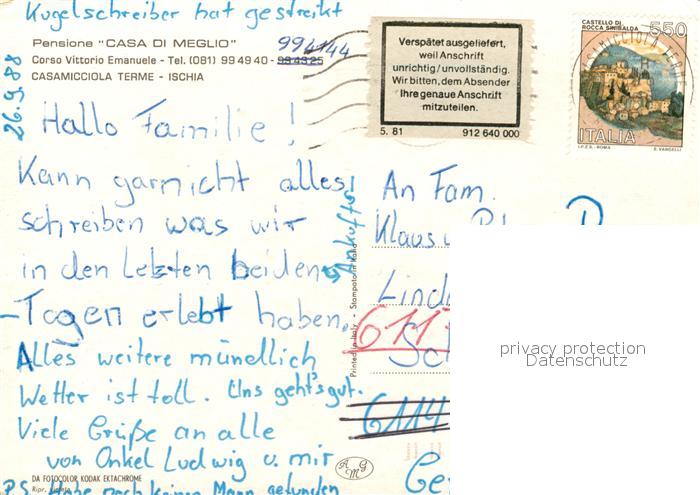 Kugelschreiber hat gestreikt
Pensione "CASA DI MEGLIO"
994144
Corso Vittorio Emanuele - Tel. (081) 99 49 40 -
CASAMICCIOLA TERME - ISCHIA
26.9.88
Hallo Familie!
Kann garnicht alles!
schreiben was wir
in den letzten beiden
Ankuftst
-Tagen erlebt haben.
Alles weitere mündlich
Wetter ist toll. Uns geht's gut.
Viele Grüße an alle
von Onkel Ludwig u. mir
DA FOTOCOLOR KODAK EKTACHROME
P.S. Habe noch keinen Mann gefunden
Verspätet ausgeliefert,
weil Anschrift
unrichtig/unvollständig.
Wir bitten, dem Absender
Ihre genaue Anschrift
mitzuteilen.
5. 81 912 640 000
CASTELLO DI
ROCCA SINIBALDA
550
ITALIA
I.P.Z.S. - ROMA E. VANGELLI
An Fam.
Klaus u
Lind
611
6114
Printed in Italy - Stampato in Italia
AMG
privacy protection
Datenschutz